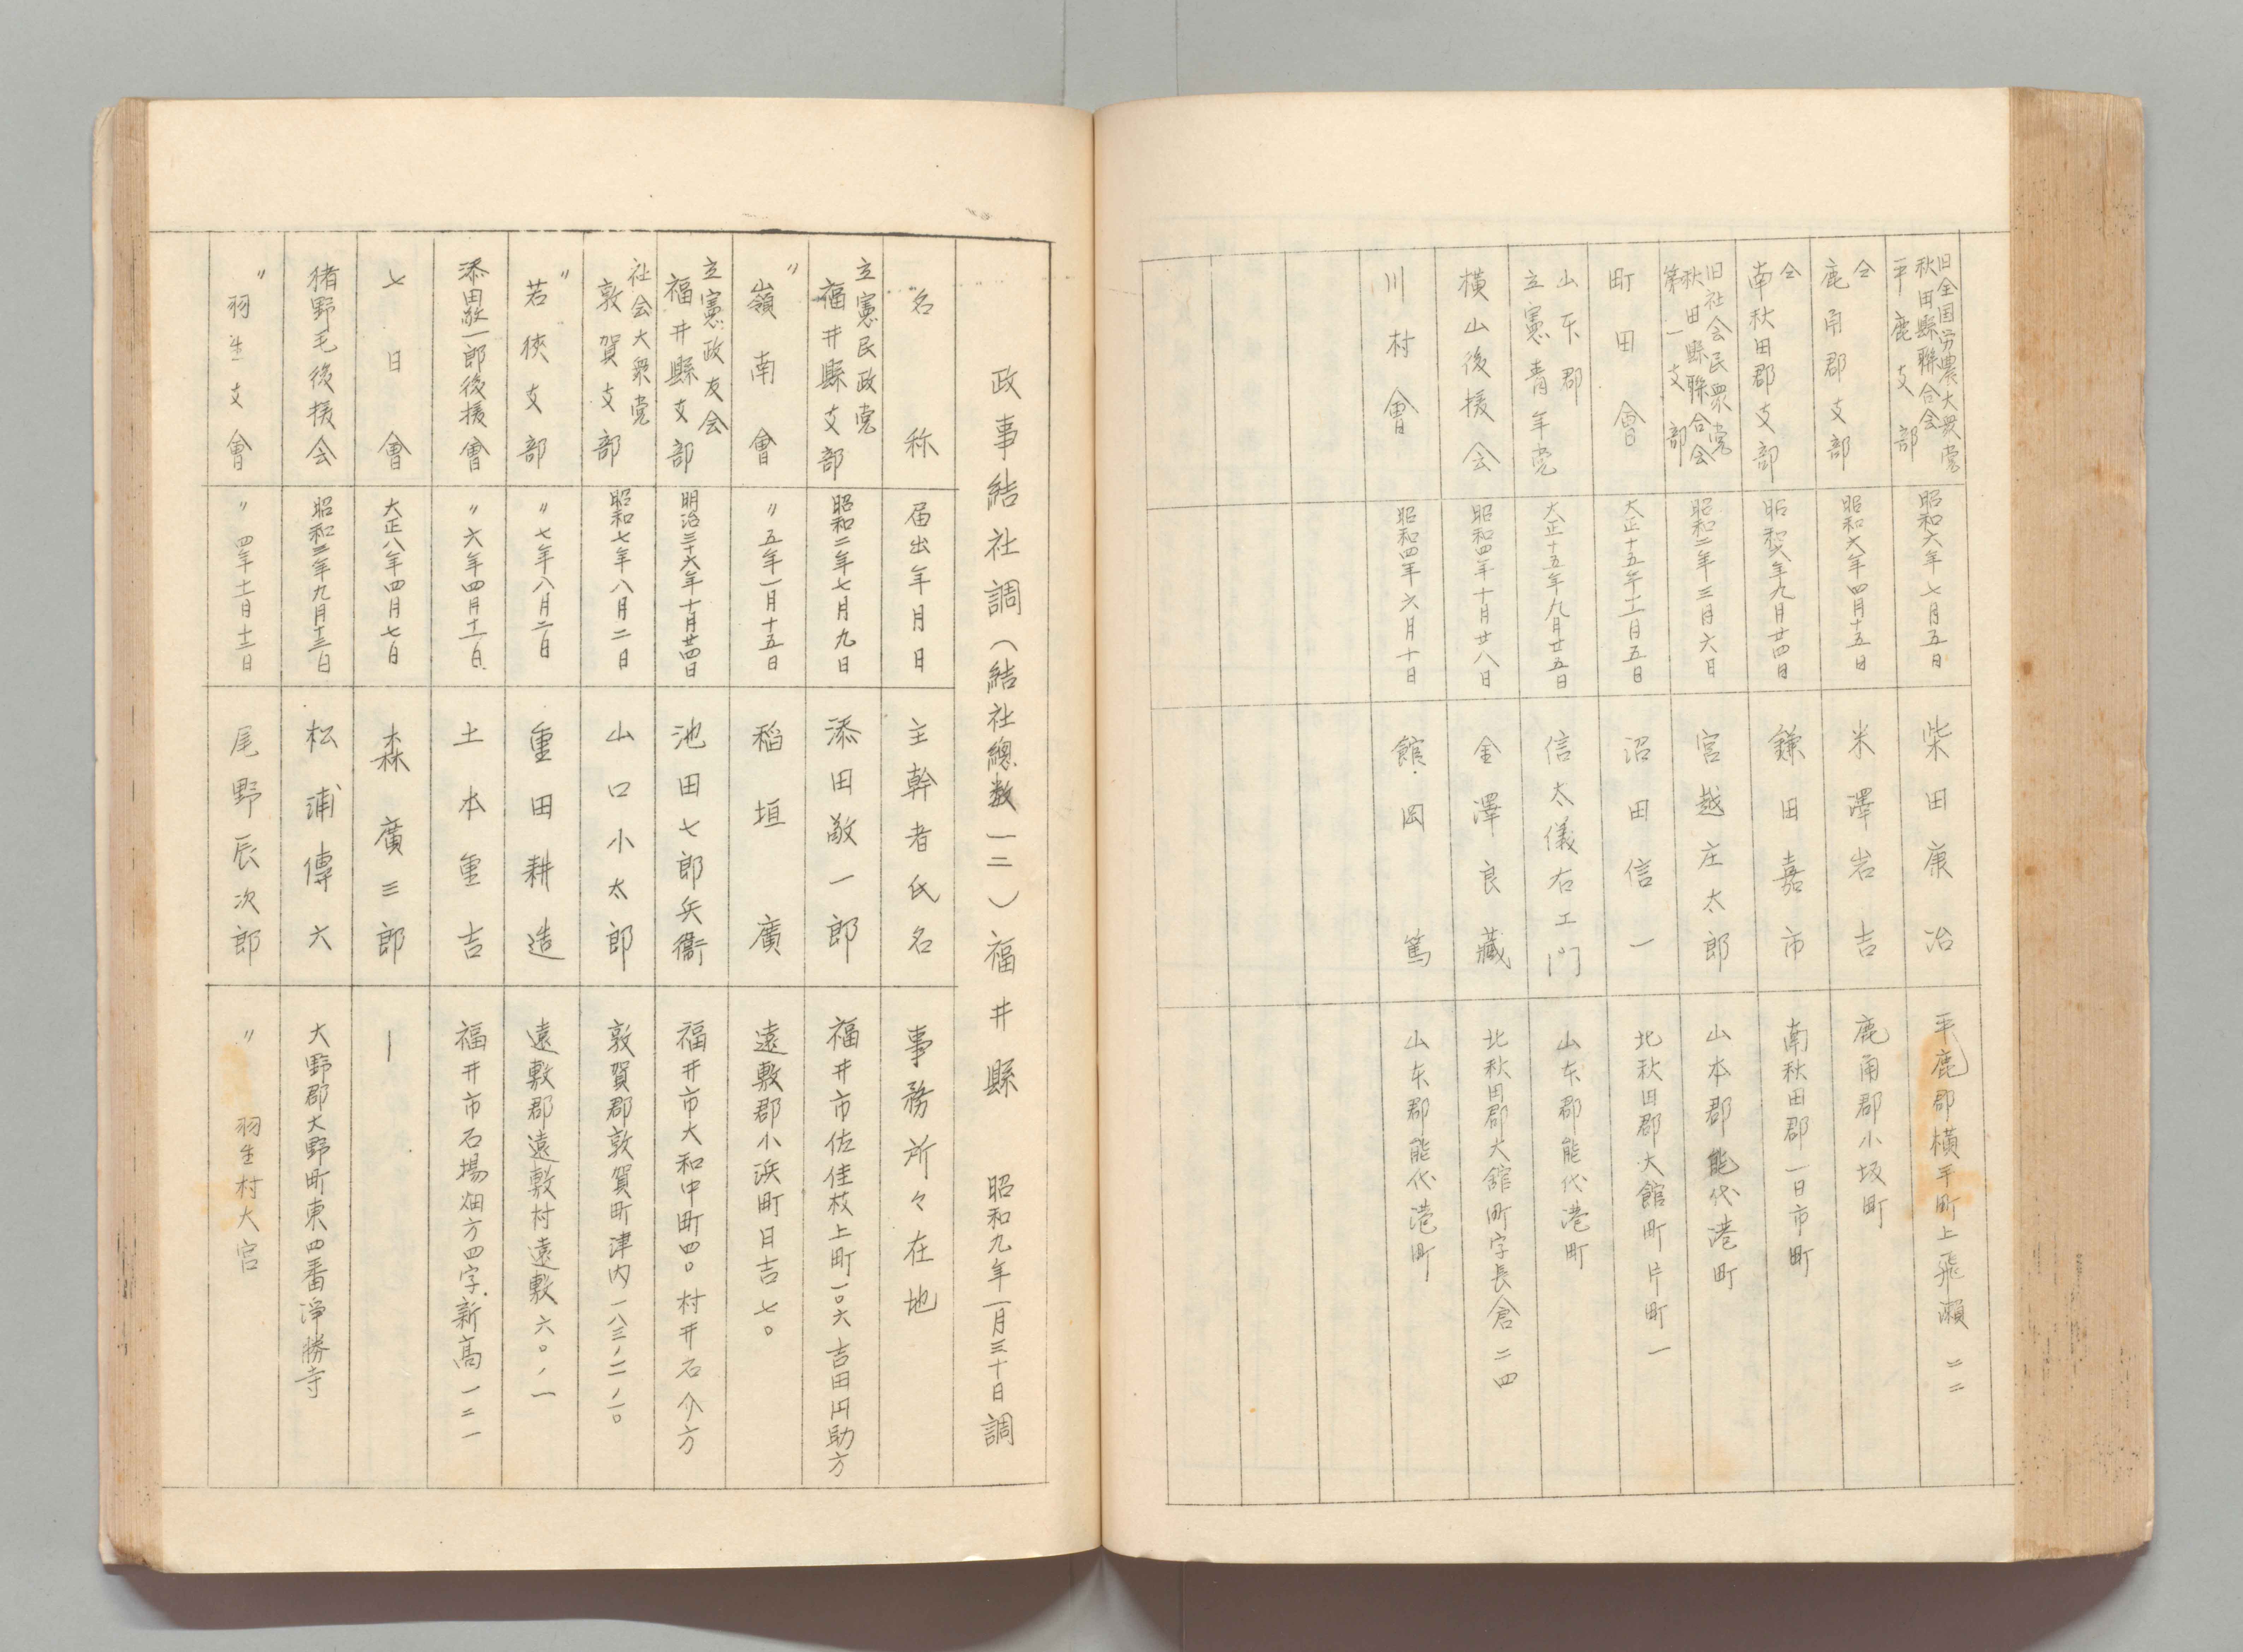 旧全国労農大衆党
秋田縣聯合会
平鹿支部
昭和六年七月五日
柴田康治
平鹿郡横手町上飛瀬二二
仝
鹿角郡支部
昭和六年四月十五日
米澤岩吉
鹿角郡小坂町
仝
南秋田郡支部
昭和六年九月廿四日
鎌田嘉市
南秋田郡一日市町
旧社会民衆党
秋田縣聯合会
第一支部
昭和二年三月六日
宮越庄太郎
山本郡能代港町
町田會
大正十五年十二月五日
沼田信一
北秋田郡大館町片町一
山本郡
立憲青年党
大正十五年九月廿五日
信太儀右エ門
山本郡能代港町
横山後援会
昭和四年十月廿八日
金澤良藏
北秋田郡大舘町字長倉二四
川村會
昭和四年六月十日
館岡篤
山本郡能代港町
政事結社調(結社總数一二)福井縣 昭和九年一月三十日調
名称
届出年月日
主幹者氏名
事務所々在地
立憲民政党
福井縣支部
昭和二年七月九日
添田敬一郎
福井市佐佳枝上町一〇六吉田円助方
〃
嶺南會
〃五年一月十五日
稲垣廣
遠敷郡小浜町日吉七〇
立憲政友会
福井縣支部
明治三十六年十月廿四日
池田七郎兵衞
福井市大和中町四〇村井石介方
社会大衆党
敦賀支部
昭和七年八月二日
山口小太郎
敦賀郡敦賀町津内一八三ノ二ノ一〇
〃
若狭支部
〃七年八月二日
重田耕造
遠敷郡遠敷村遠敷六〇ノ一
添田敬一郎後援會
〃六年四月十一日
土本重吉
福井市石場畑方四字新高一二一
七日會
大正八年四月七日
森廣三郎
―
猪野毛後援会
昭和三年九月十三日
松浦傳六
大野郡大野町東四番淨勝寺
〃
羽生支會
〃四年十二月十三日
尾野辰次郎
〃 羽生村大宮